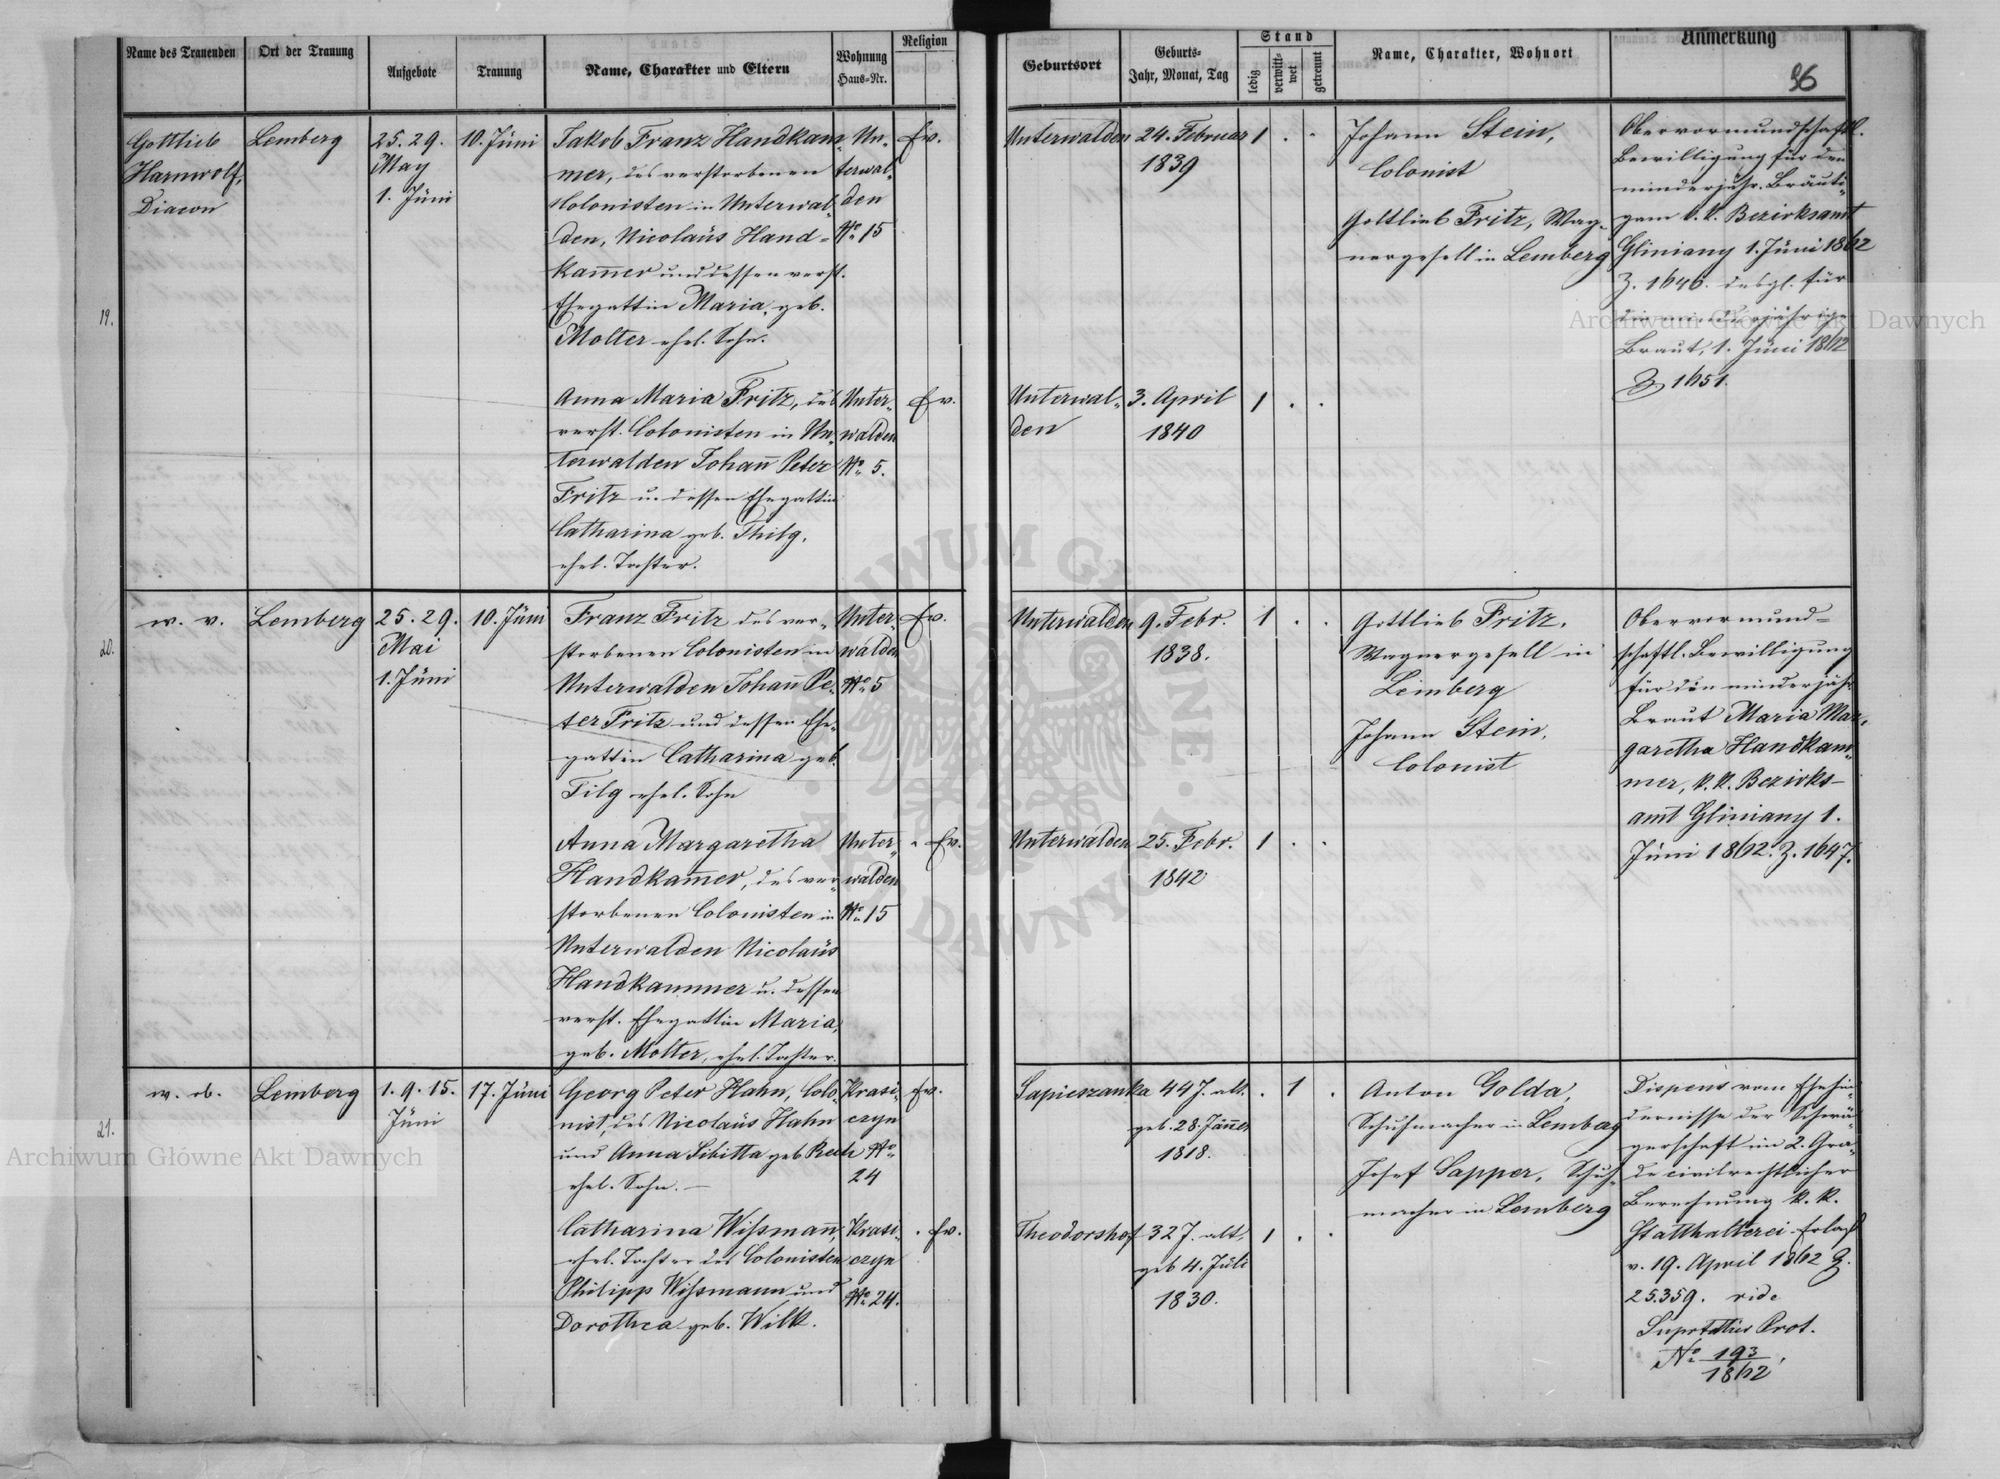 Name des Trauenden
Ort der Trauung
Aufgebote
Trauung
Name, Charakter und Eltern
Wohnung
Haus-Nr.
Religion
Geburtsort
Geburts-
Jahr, Monat, Tag
Stand
ledig
verwitt-
wet
getrennt
Name, Charakter, Wohnort
Anmerkung
96
19.
Gottlieb
Harnwolf,
Diacon
Lemberg
25. 29.
May
1. Jüni
10. Jüni
Jakob Franz Handkam-
mer, des verstorbenen
Colonisten in Unterwal-
den, Nicolaüs Hand-
kam̄er und dessen verst.
Ehegattin Maria, geb.
Molter ehel. Sohn.
Un-
terwal-
den
No 15
Ev.
Unterwalden
24. Februar
1839
1 . .
Johann Stein,
Colonist
Gottlieb Fritz, Wag-
nergesell in Lemberg
Obervormundschaftl.
Bewilligung für den
minderjähr. Bräuti-
gam k. k. Bezirksamt
Gliniany 1. Jüni 1862
Z. 1646. desgl. für
die minderjährige
Braut, 1. Jüni 1862
Z 1651.
Anna Maria Fritz, des
verst. Colonisten in Un-
terwalden Johan̄ Peter
Fritz u. dessen Ehegattin
Catharina geb. Thilg,
ehel. Tochter.
Unter-
walden
No 5.
Ev.
Unterwal-
den
3. April
1840
1 . .
20.
w. v.
Lemberg
25. 29.
Mai
1. Jüni
10. Jüni
Franz Fritz des ver-
storbenen Colonisten in
Unterwalden Johan̄ Pe-
ter Fritz und dessen Ehe-
gattin Catharina geb.
Tilg ehel. Sohn
Unter-
walden
No 5
Ev.
Unterwalden
9. Febr.
1838.
1 . .
Gottlieb Fritz,
Wagnergesell in
Lemberg
Johann Stein,
Colonist
Obervormund-
schaftl. Bewilligung
für die minderjähr.
Braut Maria Mar-
garetha Handkam-
mer, k. k. Bezirks-
amt Gliniany 1.
Jüni 1862. Z. 1647.
Anna Margaretha
Handkam̄er, des ver-
storbenen Colonisten in
Unterwalden Nicolaüs
Handkammer u. dessen
verst. Ehegattin Maria,
geb. Molter, ehel. Tochter.
Unter-
walden
No 15
. Ev.
Unterwalden
25. Febr.
1842
1 . .
21.
w. ob.
Lemberg
1. 9. 15.
Jüni
17. Jüni
Georg Peter Hahn, Colo-
nist, des Nicolaüs Hahn
und Anna Sibilla geb Rech
ehel. Sohn. —
Krasi-
czyn
No
24
Ev.
Sapieszanka
44 J. alt.
geb. 28. Jän̄er
1818.
. 1 .
Anton Golda,
Schuhmacher in Lemberg
Josef Sapper, Schuh-
macher in Lemberg
Dispens vom Ehehin-
dernisse der Schwä-
gerschaft im 2. Gra-
de civilrechtlicher
Berechnung k. k.
Statthalterei-Erlaß
v. 19. April 1862 Z.
25.359. vide
Prot.
No 193
1862
Catharina Wißman̄,
ehel. Tochter des Colonisten
Philipp Wißmann und
Dorothea geb. Wilk.
Krasi-
czyn
No 24.
. Ev.
Theodorshof
32 J. alt,
geb 4. Jüli
1830.
1 . .
Archiwum Główne Akt Dawnych
Archiwum Główne Akt Dawnych
ARCHIWUM GŁÓWNE AKT DAWNYCH